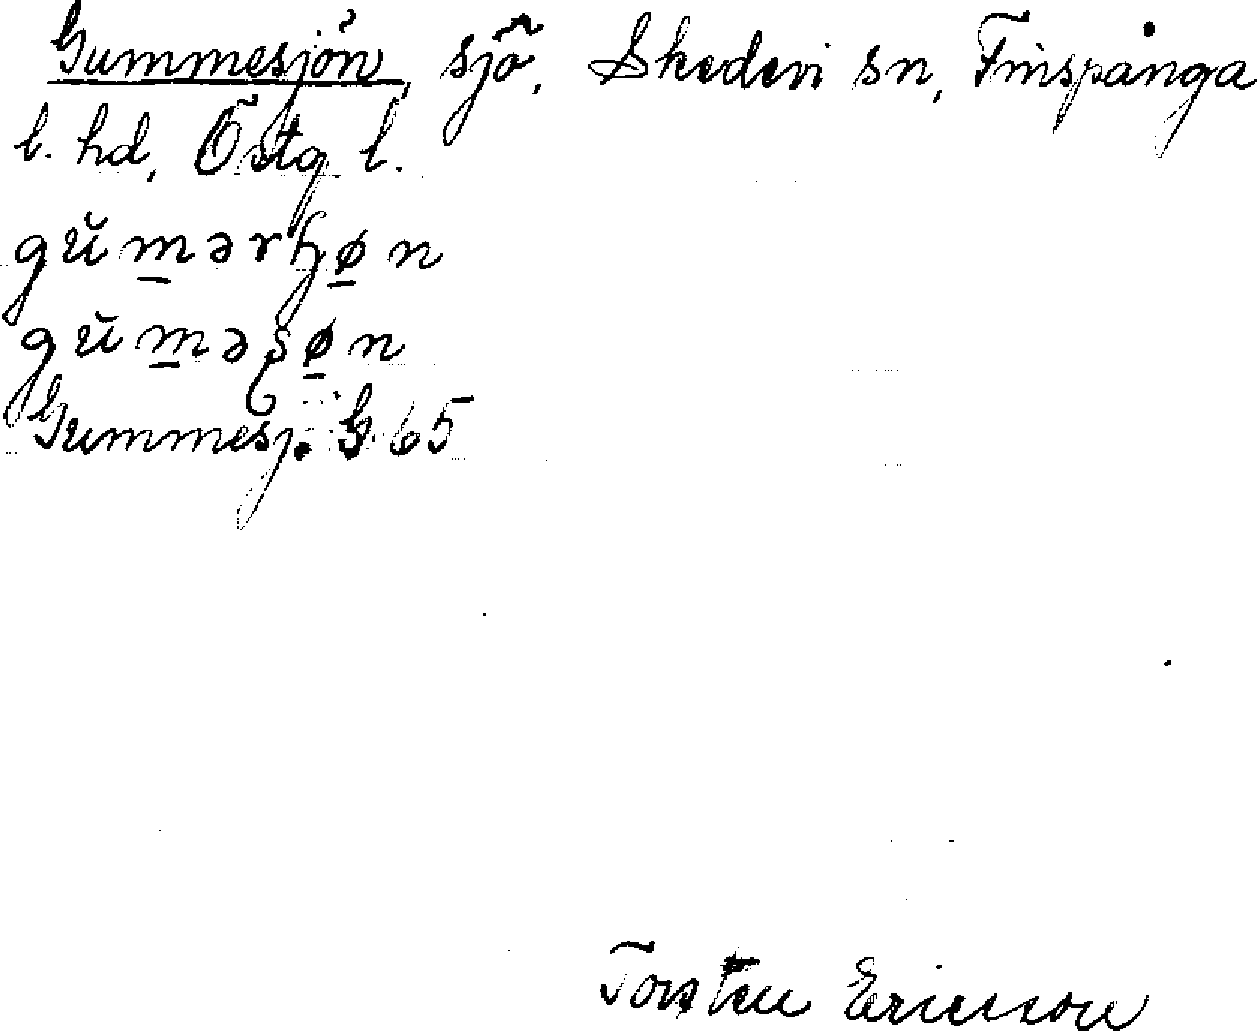 Gummesjön, sjö, Skedevi sn, Finspånga
l. hd, Östg l.
gŭmərɧøn
gŭməʂøn
Gummesj. G 65
Torsten Ericsson